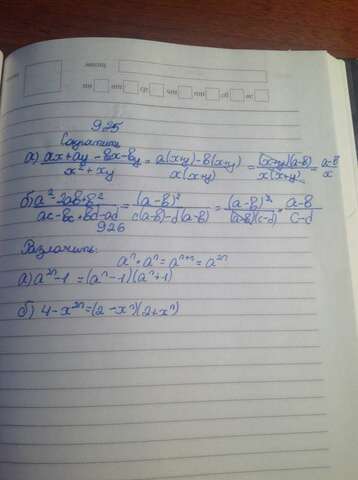 месяц
пн вт ср чт пт сб вс
925
Сократить
а) ax+ay-bx-by/x²+xy = a(x+y)-b(x+y)/x(x+y) = (x+y)(a-b)/x(x+y) = a-b/x
б) a²-2ab+b²/ac-bc+bd-ad = (a-b)²/c(a-b)-d(a-b) = (a-b)²/(a-b)(c-d) = a-b/c-d
926
Разложить:
aⁿ·aⁿ=aⁿ⁺ⁿ=a²ⁿ
а) a²ⁿ-1=(aⁿ-1)(aⁿ+1)
б) 4-x²ⁿ=(2-xⁿ)(2+xⁿ)